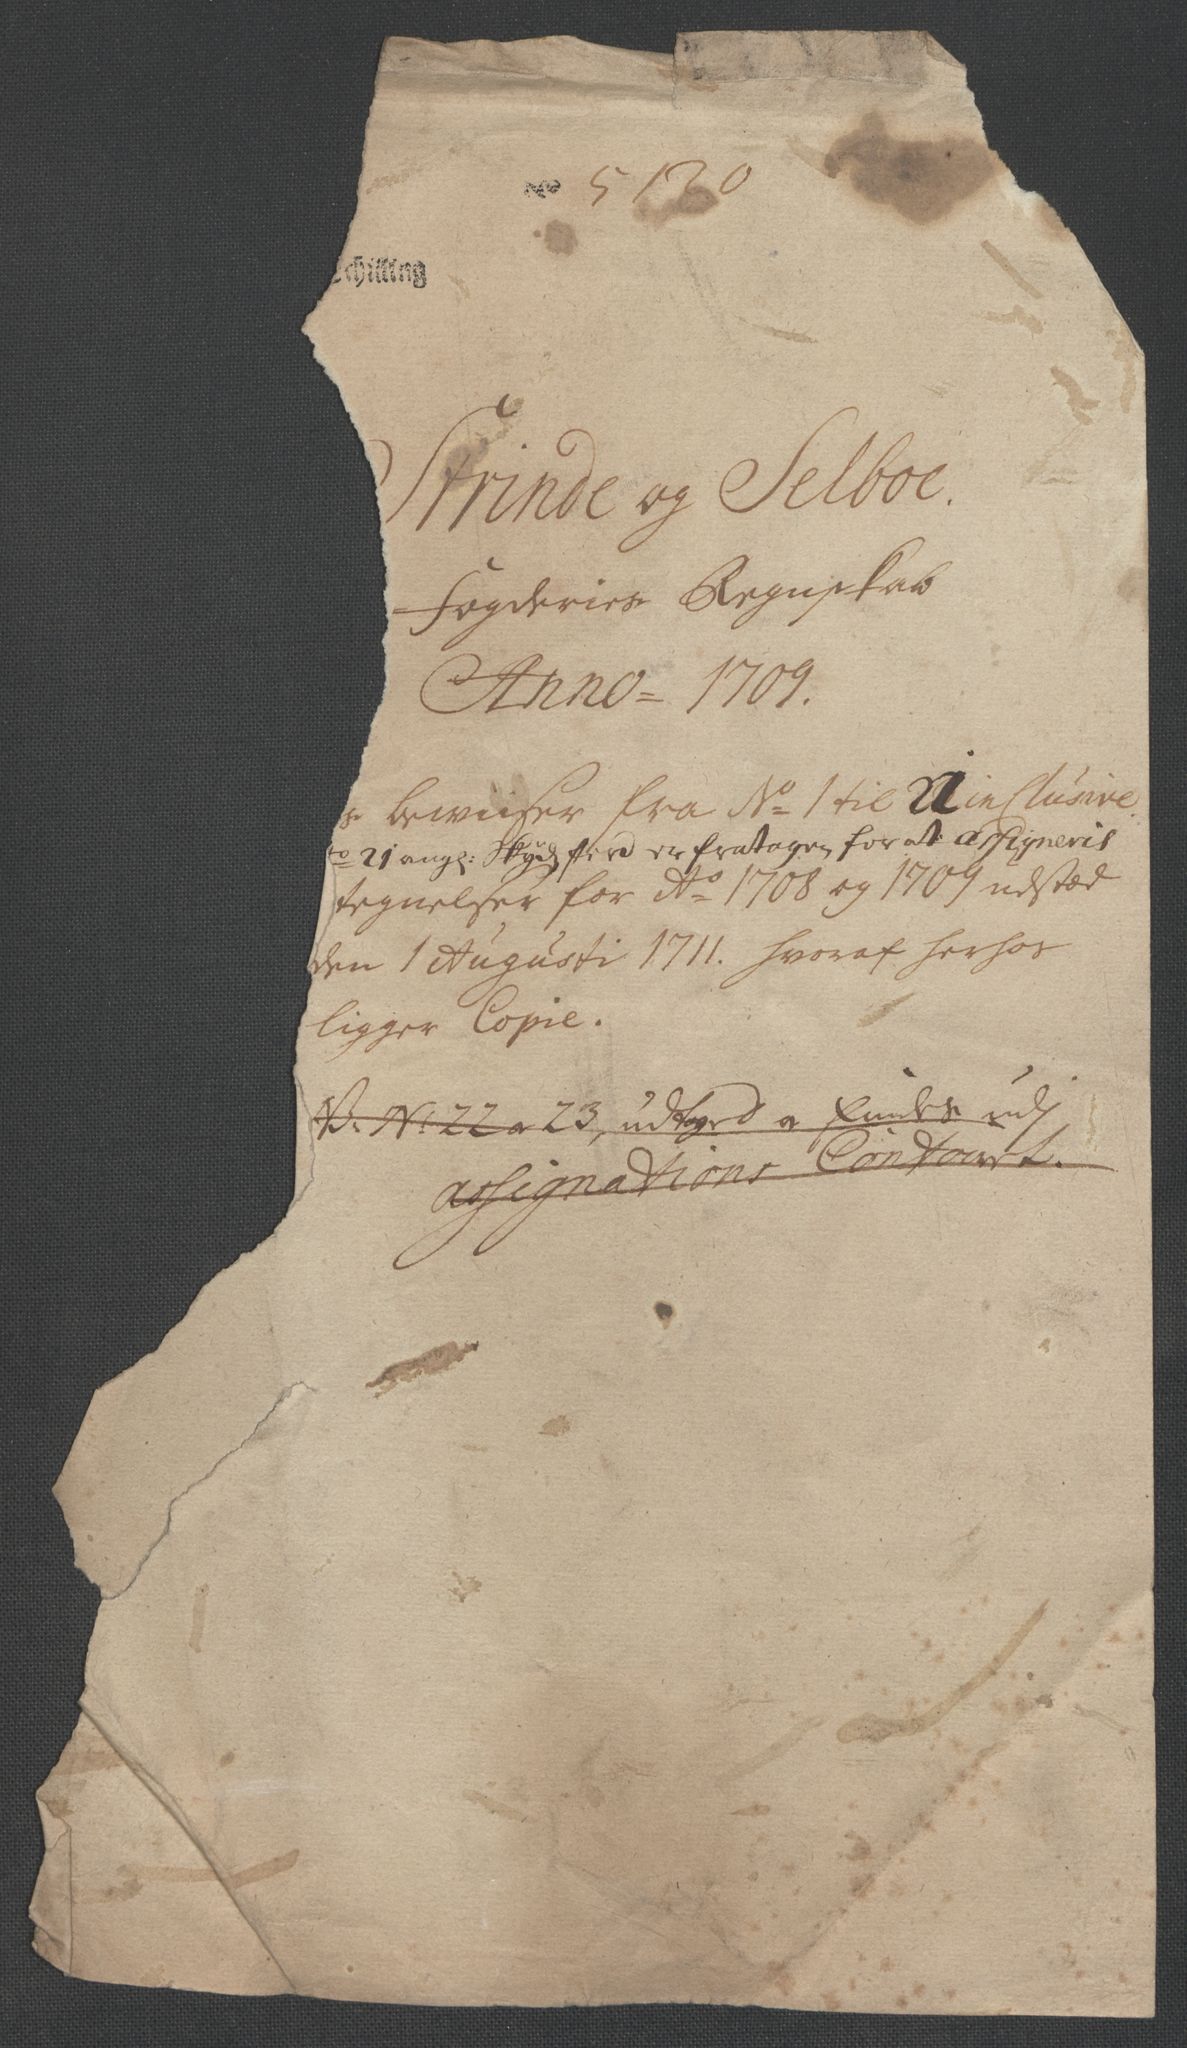 No 5120
Schilling
Strinde og Selboe.
Fogderies Regnskab
Anno = 1709.
bewiiser fra No 1 til 21 inClusive
No 21 ang: Skydsferd er fratagen for at assigneris
tegnelser for Ao 1708 og 1709 udstæd
den 1 Augusti 1711. hvoraf herhos
ligger Copie.
No 22 og 23, udtaged og findes udj
assignations Contoiret.